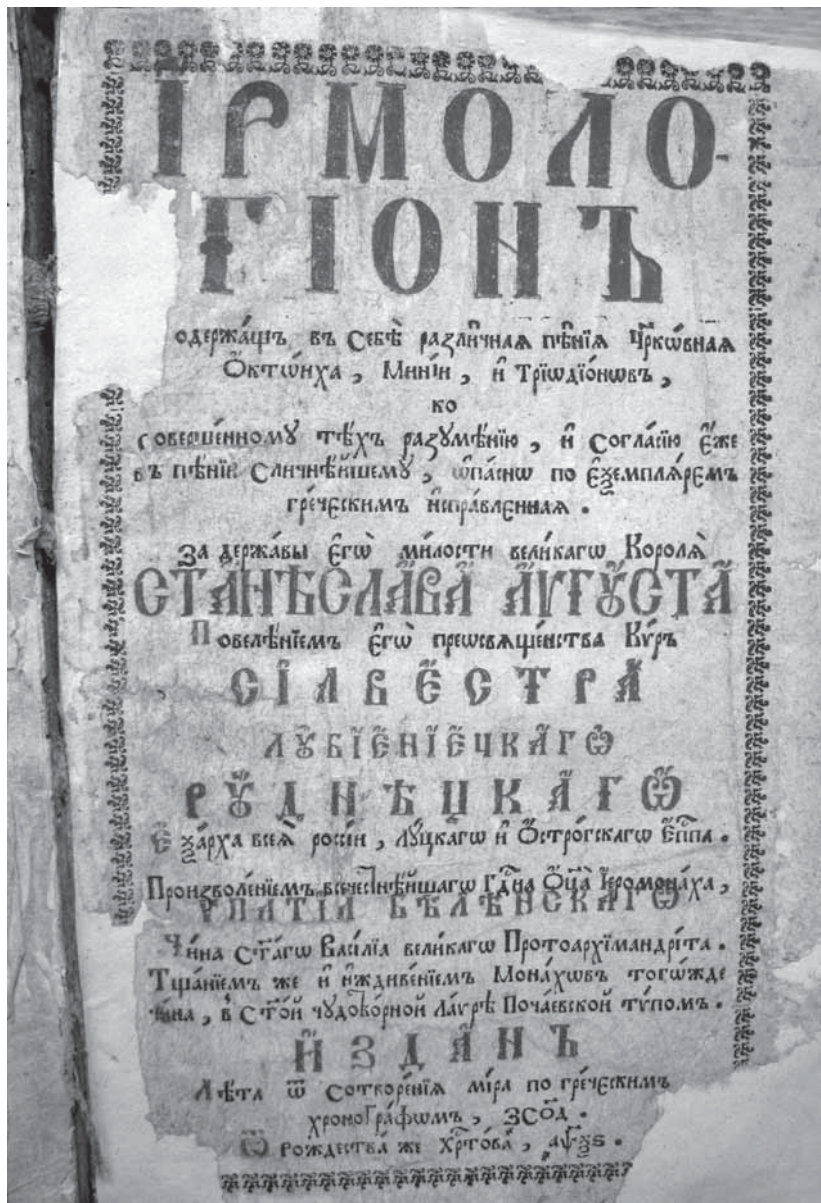 ІРМОЛО-
ГІОНЪ
одержа́щъ въ Себѣ̀ разли́чная пѣ̑нїя Цр҃кѡ́вная
Ѻ҆ктѡ́иха, Мині́и, и҆ Трїѡдїо́нѡвъ,
ко
соверше́нному тѣ́хъ разꙋмѣ́нїю, и҆ Согла́сїю є҆́же
въ пѣ́нїи Сличнѣ́йшемꙋ, ѡ҆па́снѡ по Є҆ѯемплѧ́рємъ
гре́ческимъ и҆спра́влєнная.
За держа́вы є҆гѡ̀ ми́лости вели́кагѡ Королѧ̀
СТАНѢСЛА́ВА А҆ѴГꙊ́СТА
Повелѣ́нїемъ є҆гѡ̀ преѡсвѧще́нства Кѵ́ръ
СІЛВЕ́СТРА
ЛꙊБІЕ́НІЕ́ЦКАГѠ
РꙊДНѢ́ЦКАГѠ
Є҆ѯа́рха всеѧ̀ россі́и, лꙋ́цкагѡ и҆ Ѻ҆стро́гскагѡ Є҆пⷭ҇па.
Произволе́нїемъ всечестнѣ́йшагѡ Гд҇на Ѻ҆ц҃а̀ І҆еромона́ха,
УПАТІА БѢЛѢНСКАГѠ
Чи́на Ст҃а́гѡ Васи́лїа вели́кагѡ Протоархїмандрі́та.
Тща́нїемъ же и҆ и҆ждиве́нїемъ Мона́хѡвъ тогѡ́жде
чи́на, в Ст҃о́й чꙋдотво́рной ла́ѵрѣ Поча́евской ти́помъ.
И҆ЗДА́НЪ
Лѣ́та ѿ Сотворе́нїѧ мі́ра по гре́ческимъ
хроногра́фѡмъ, ЗСО҃Д.
Ѿ рождества́ же Хрⷭ҇то́ва, ҂аѰѮЅ.